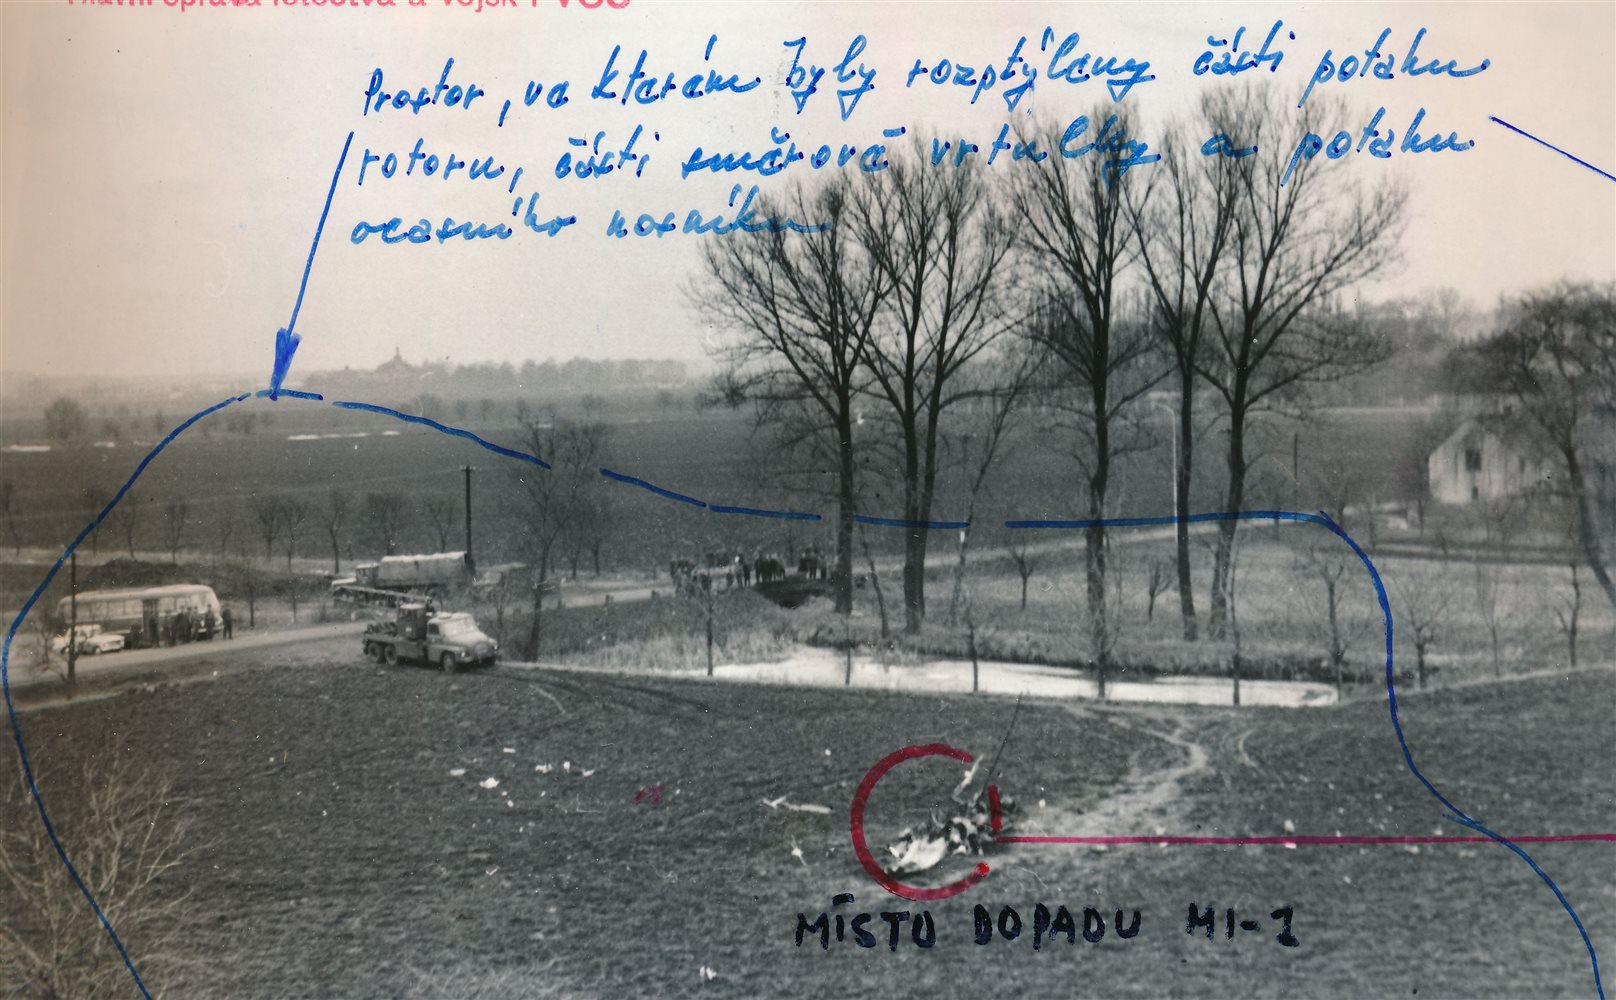 Hlavní správa letectva a vojsk PVOS
Prostor, ve kterém byly rozptýleny části potahu
rotoru, části směrové vrtulky a potahu
ocasního nosníku
MÍSTO DOPADU MI-1